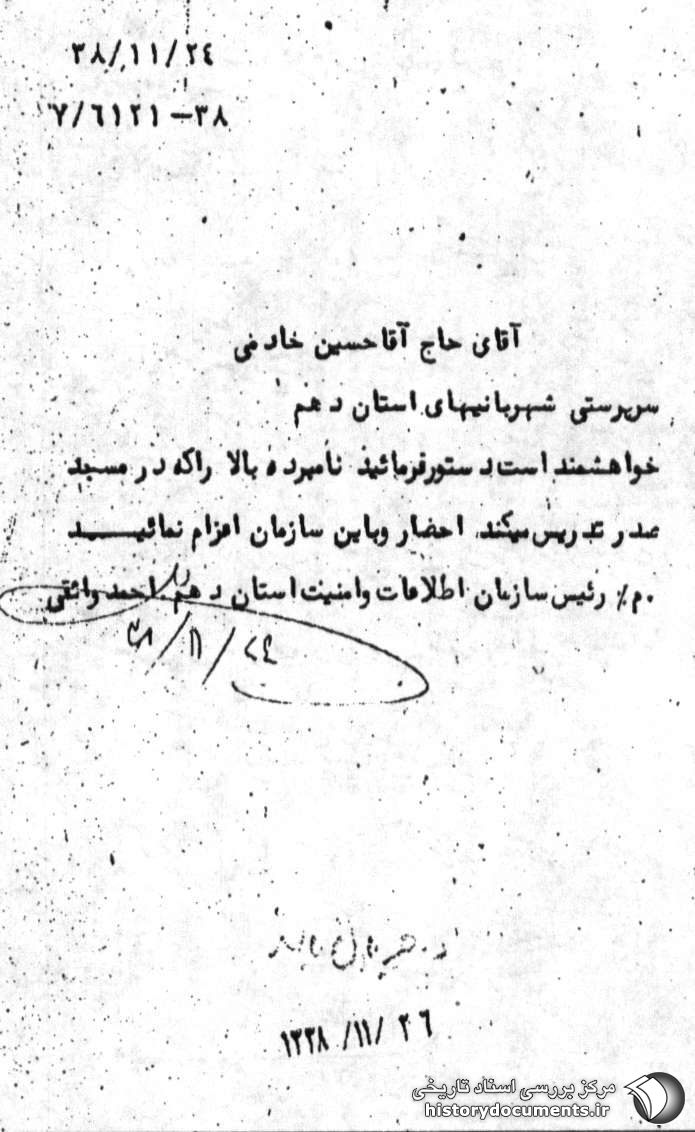 ۳۸/۱۱/۲۴
۷/۶۱۲۱-۳۸
آقای حاج آقاحسین خادمی
سرپرستی شهربانیهای استان دهم
خواهشمند است دستورفرمائید نامبرده بالا راکه در مسجد
صدر تدریس میکند احضار وباین سازمان اعزام نمائیـــد
۰م٪ رئیس سازمان اطلاعات وامنیت استان دهم احمد واثقی
۳۸/۱۱/۲۴
۱۳۳۸/۱۱/۲۶
مرکز بررسی اسناد تاریخی
historydocuments.ir